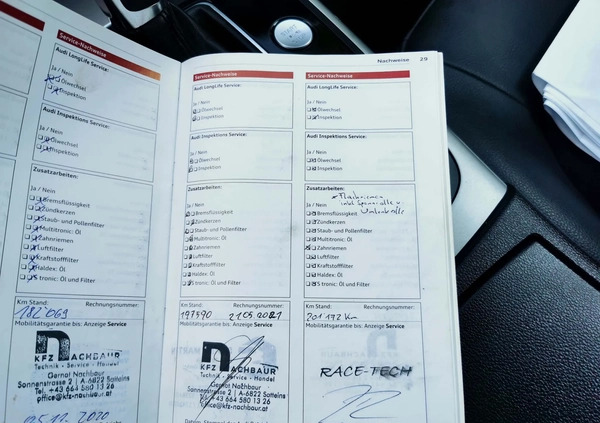 Service-Nachweise
Audi LongLife Service:
Ja / Nein
Ölwechsel
Inspektion
Audi Inspektions Service:
Ja / Nein
Ölwechsel
Inspektion
Zusatzarbeiten:
Ja / Nein
Bremsflüssigkeit
Zündkerzen
Staub- und Pollenfilter
Multitronic: Öl
Zahnriemen
Luftfilter
Kraftstofffilter
Haldex: Öl
S tronic: Öl und Filter
Km Stand: Rechnungsnummer:
182'069
Mobilitätsgarantie bis: Anzeige Service
n
KFZ NACHBAUR
Technik - Service - Handel
Gernot Nachbaur
Sonnenstrasse 2 | A-6822 Satteins
Tel. +43 664 580 13 26
office@kfz-nachbaur.at
05.12.2020
Nachweise 29
Service-Nachweise
Audi LongLife Service:
Ja / Nein
Ölwechsel
Inspektion
Audi Inspektions Service:
Ja / Nein
Ölwechsel
Inspektion
Zusatzarbeiten:
Ja / Nein
Bremsflüssigkeit
Zündkerzen
Staub- und Pollenfilter
Multitronic: Öl
Zahnriemen
Luftfilter
Kraftstofffilter
Haldex: Öl
S tronic: Öl und Filter
Km Stand: Rechnungsnummer:
197590 21.05.2021
Mobilitätsgarantie bis: Anzeige Service
n
KFZ NACHBAUR
Technik - Service - Handel
Gernot Nachbaur
Sonnenstrasse 2 | A-6822 Satteins
Tel. +43 664 580 13 26
office@kfz-nachbaur.at
Service-Nachweise
Audi LongLife Service:
Ja / Nein
Ölwechsel
Inspektion
Audi Inspektions Service:
Ja / Nein
Ölwechsel
Inspektion
Zusatzarbeiten:
Flachriemen
inkl. Spannrolle u.
Umlenkrolle
Ja / Nein
Bremsflüssigkeit
Zündkerzen
Staub- und Pollenfilter
Multitronic: Öl
Zahnriemen
Luftfilter
Kraftstofffilter
Haldex: Öl
S tronic: Öl und Filter
Km Stand: Rechnungsnummer:
201 172 Km
Mobilitätsgarantie bis: Anzeige Service
RACE-TECH